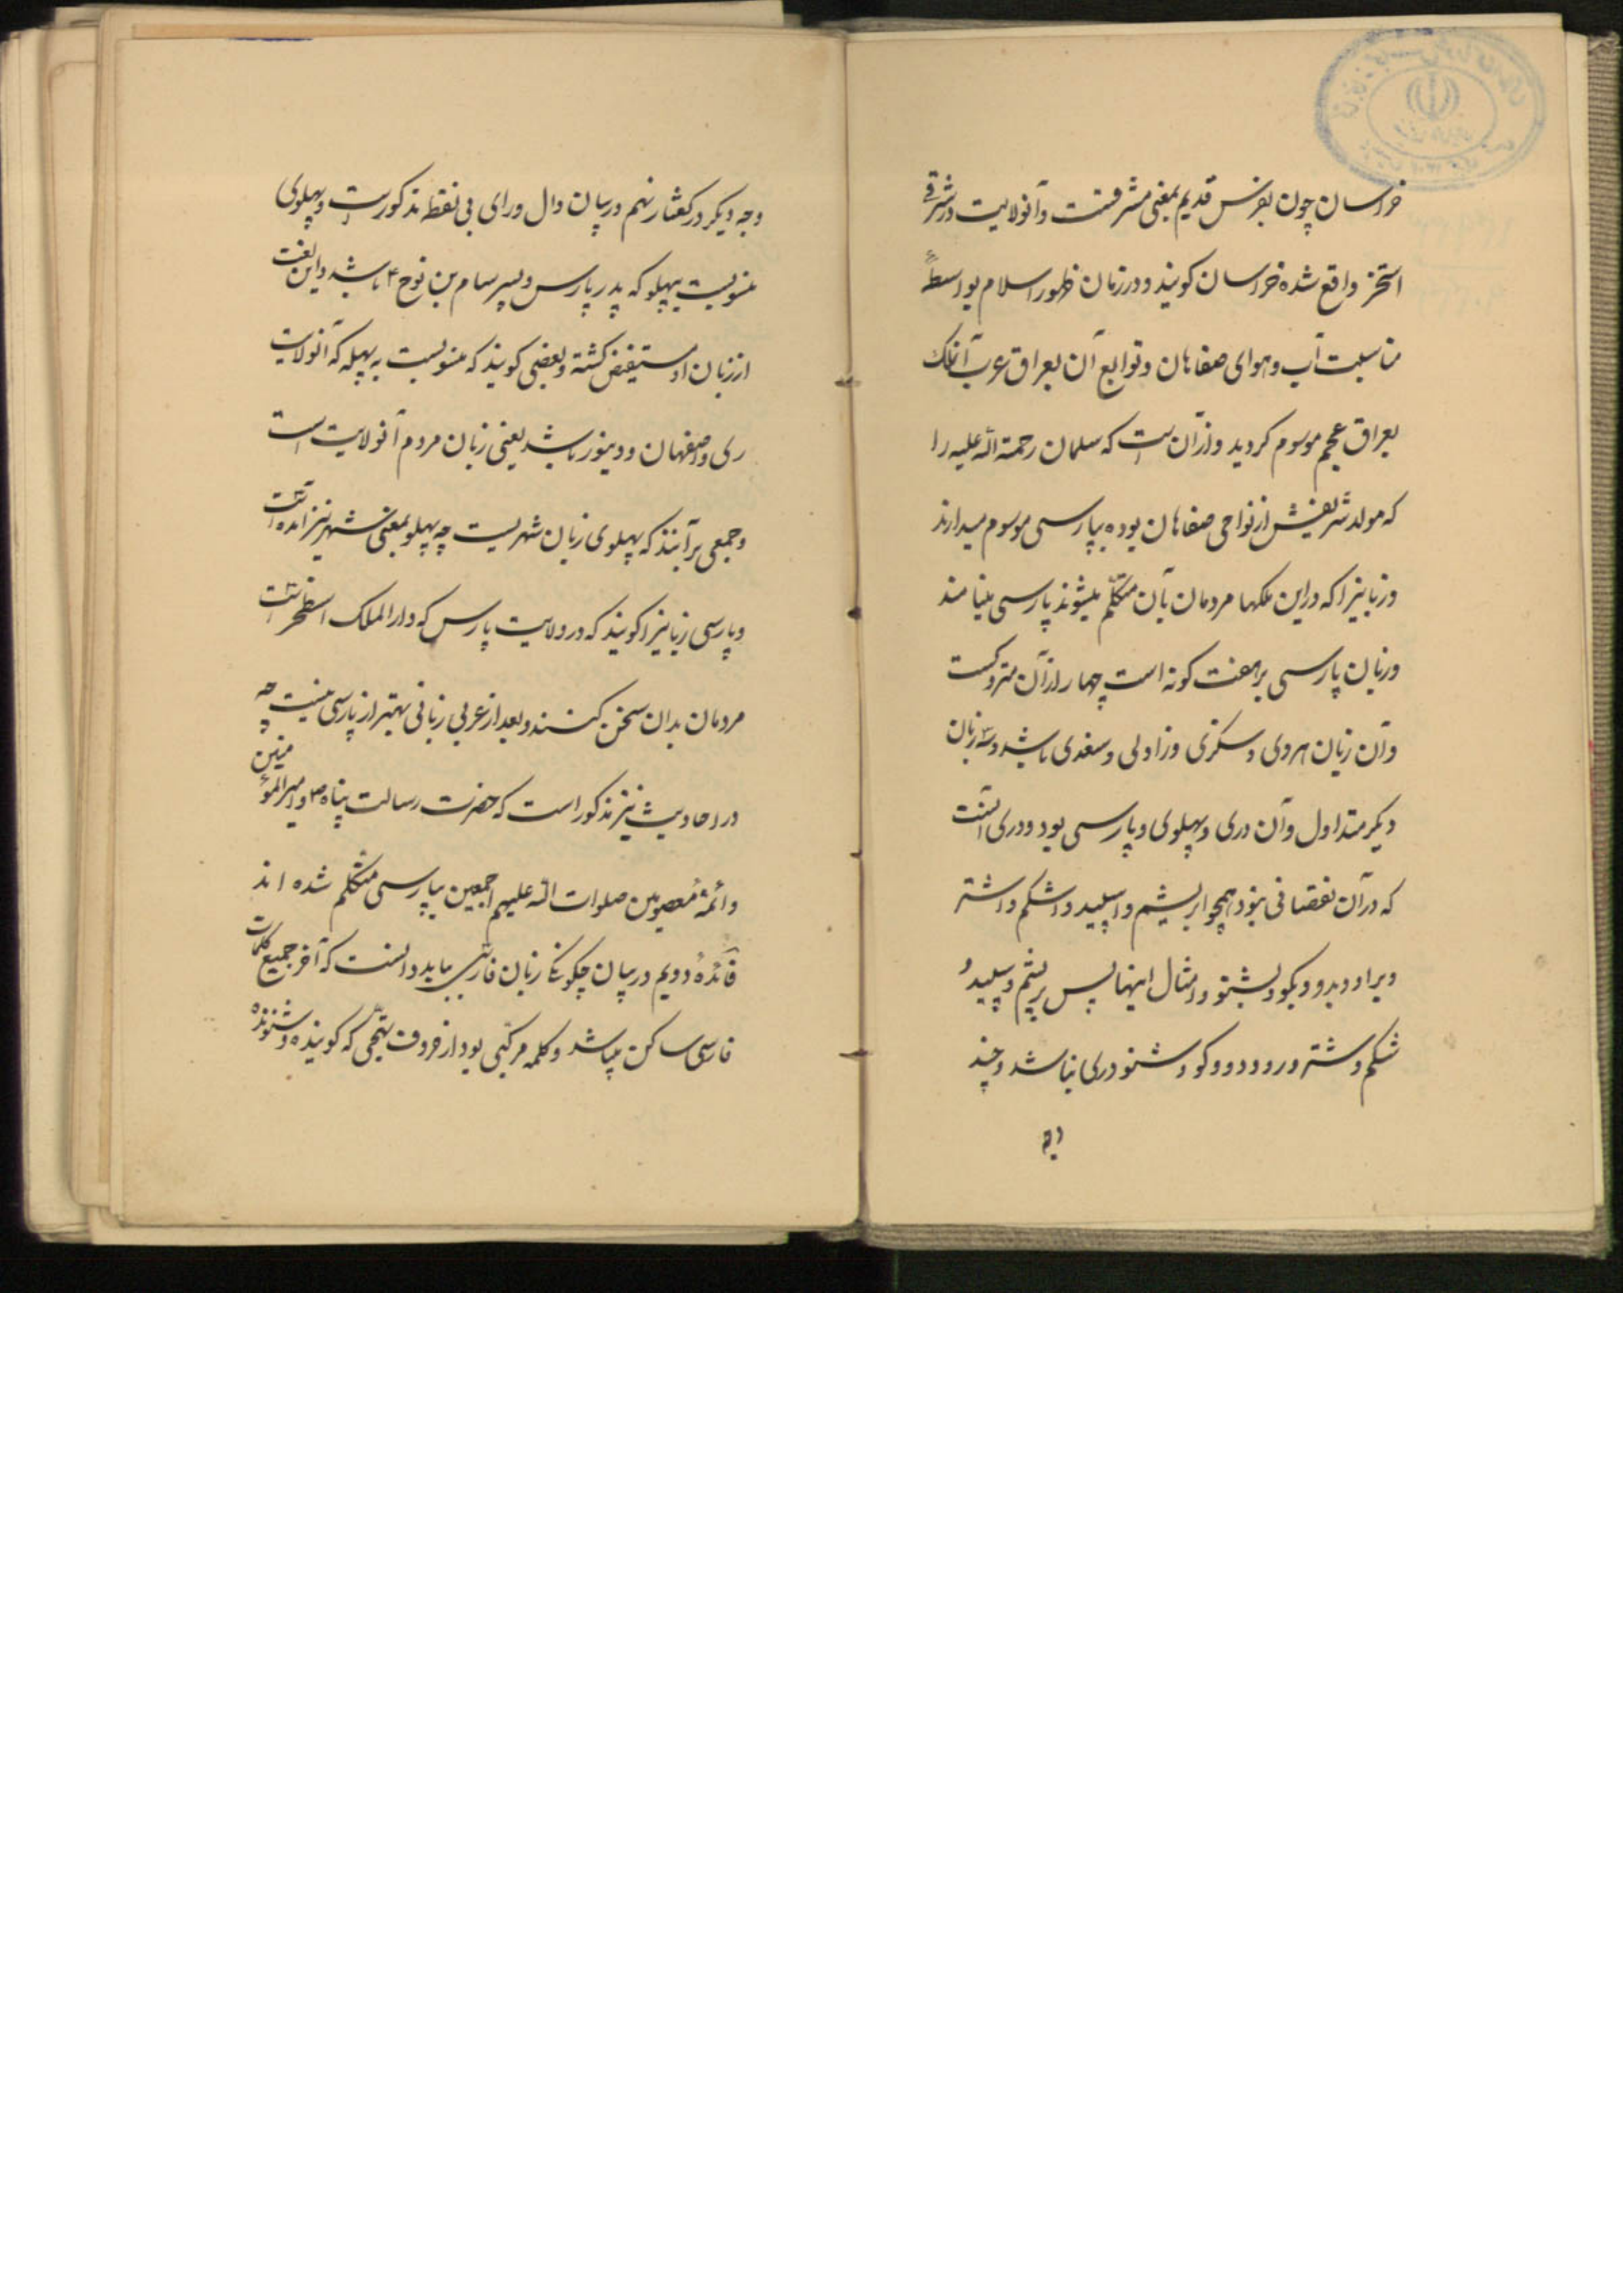 خراسان چون بفرس قدیم بمعنی مشرقست و آنولایت در شرقی
استخر واقع شده خراسان کویند و در زمان ظهور اسلام بواسطهٔ
مناسبت آب و هوای صفاهان و توابع آن بعراق عرب آنملک
بعراق عجم موسوم کردید و از آن است که سلمان رحمة الله علیه را
که مولد شریفش از نواحی صفاهان بوده بپارسی موسوم میدارند
و زبانیرا که در این ملکها مردمان بآن متکلّم میشوند پارسی مینامند
و زبان پارسی بر هفت کونه است چهار از آن متروکست
و آن زبان هروی و سکزی و زاولی و سغدی باشد و سه زبان
دیکر متداول و آن دری و پهلوی و پارسی بود و دری آنست
که در آن نقصانی نبود همچو ابریشم و اسپید و اشکم و اشتر
و براو و بدو و بکو و بشنو و امثال اینها پس بریشم و سپید و
شکم و شتر و رو و دو و کو و شنو دری نباشد و چند
وجه دیکر در کفتار نهم در بیان دال و رای بی نقطه مذکور است و پهلوی
منسوبست بپهلو که پدر پارس و پسر سام بن نوح ۴ باشد و این لغت
از زبان او مستفیض کشته و بعضی کویند که منسوبست به پهله که آنولایت
ری و اصفهان و دینور باشد یعنی زبان مردم آنولایت است
و جمعی برآنند که پهلوی زبان شهریست چه پهلو بمعنی شهر نیز آمده است
و پارسی زبانیرا کویند که در ولایت پارس که دار الملک اسطخر است
مردمان بدان سخن کنند و بعد از عربی زبانی بهتر از پارسی نیست چه
در احادیث نیز مذکور است که حضرت رسالت پناه ص و امیر المؤمنین
و ائمهٔ معصومین صلوات الله علیهم اجمعین بپارسی متکلم شده اند
فائدهٔ دویم در بیان چکونکی زبان فارسی بباید دانست که آخر جمیع کلمات
فارسی ساکن میباشد و کلمه مرکبی بود از حروف تهجّی که کوینده و شنونده